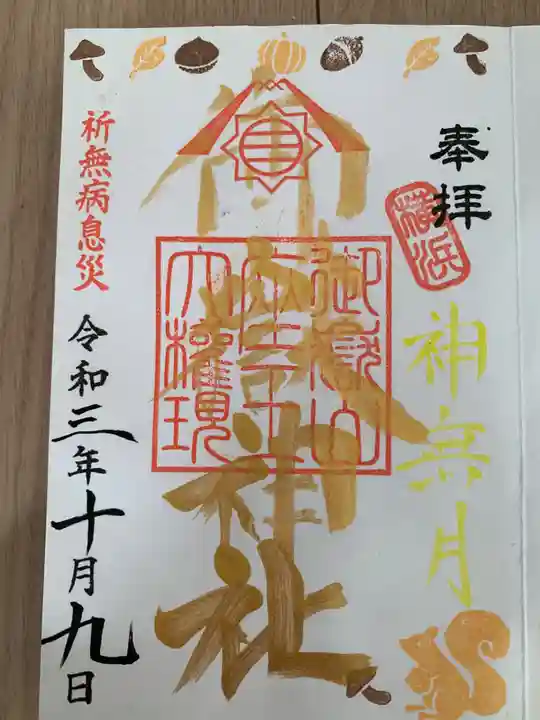 奉拝
横浜
神無月
御嶽神社
御嶽山
大権現
祈無病息災
令和三年十月九日